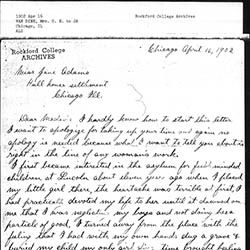 1902 Apr 16
VAN DINE, Mrs. O. E. to JA
Chicago, Il
ALS
Rockford College Archives
Rockford College
ARCHIVES
Chicago April 16, 1902
Miss Jane Addams
Hull house settlement
Chicago Ill.
Dear Madam: I hardly know how to start this letter
I want to apologize for taking up your time and again no
apology is needed because what I want to tell you about is
right in the line of any woman's work.
I first became interested in the asylum for feeble minded
children at Lincoln about eleven years ago when I placed
my little girl there, the heartache was terrible at first, I
had practically devoted my life to her until it dawned on
me that I was neglecting my boys and not doing her a
particle of good. I turned away from the place with the
feeling that I had with my own hands dug a grave &
buried my child my only girl time brought